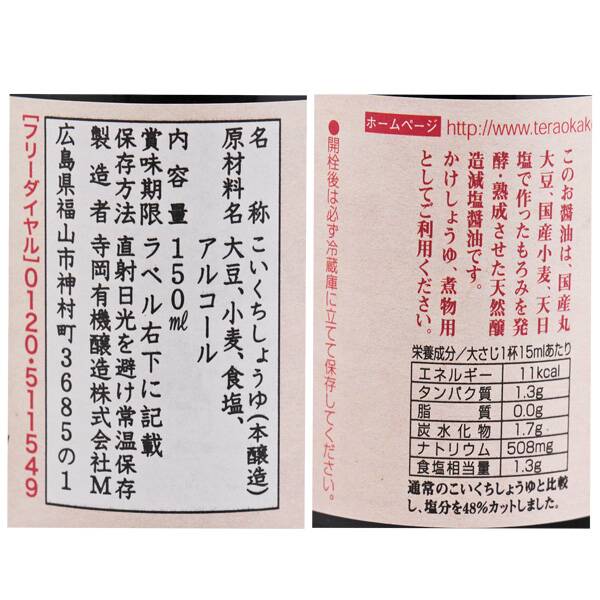 名　　称　こいくちしょうゆ(本醸造)
原材料名　大豆、小麦、食塩、
アルコール
内 容 量　150㎖
賞味期限　ラベル右下に記載
保存方法　直射日光を避け常温保存
製 造 者　寺岡有機醸造株式会社M
広島県福山市神村町3685の1
[フリーダイヤル]0120・511549
ホームページ http://www.teraokake
このお醤油は、国産丸
大豆、国産小麦、天日
塩で作ったもろみを発
酵・熟成させた天然醸
造減塩醤油です。
かけしょうゆ、煮物用
としてご利用ください。
●開栓後は必ず冷蔵庫に立てて保存してください。
栄養成分／大さじ1杯15mlあたり
エネルギー 11kcal
タンパク質 1.3g
脂　　質 0.0g
炭水化物 1.7g
ナトリウム 508mg
食塩相当量 1.3g
通常のこいくちしょうゆと比較
し、塩分を48%カットしました。